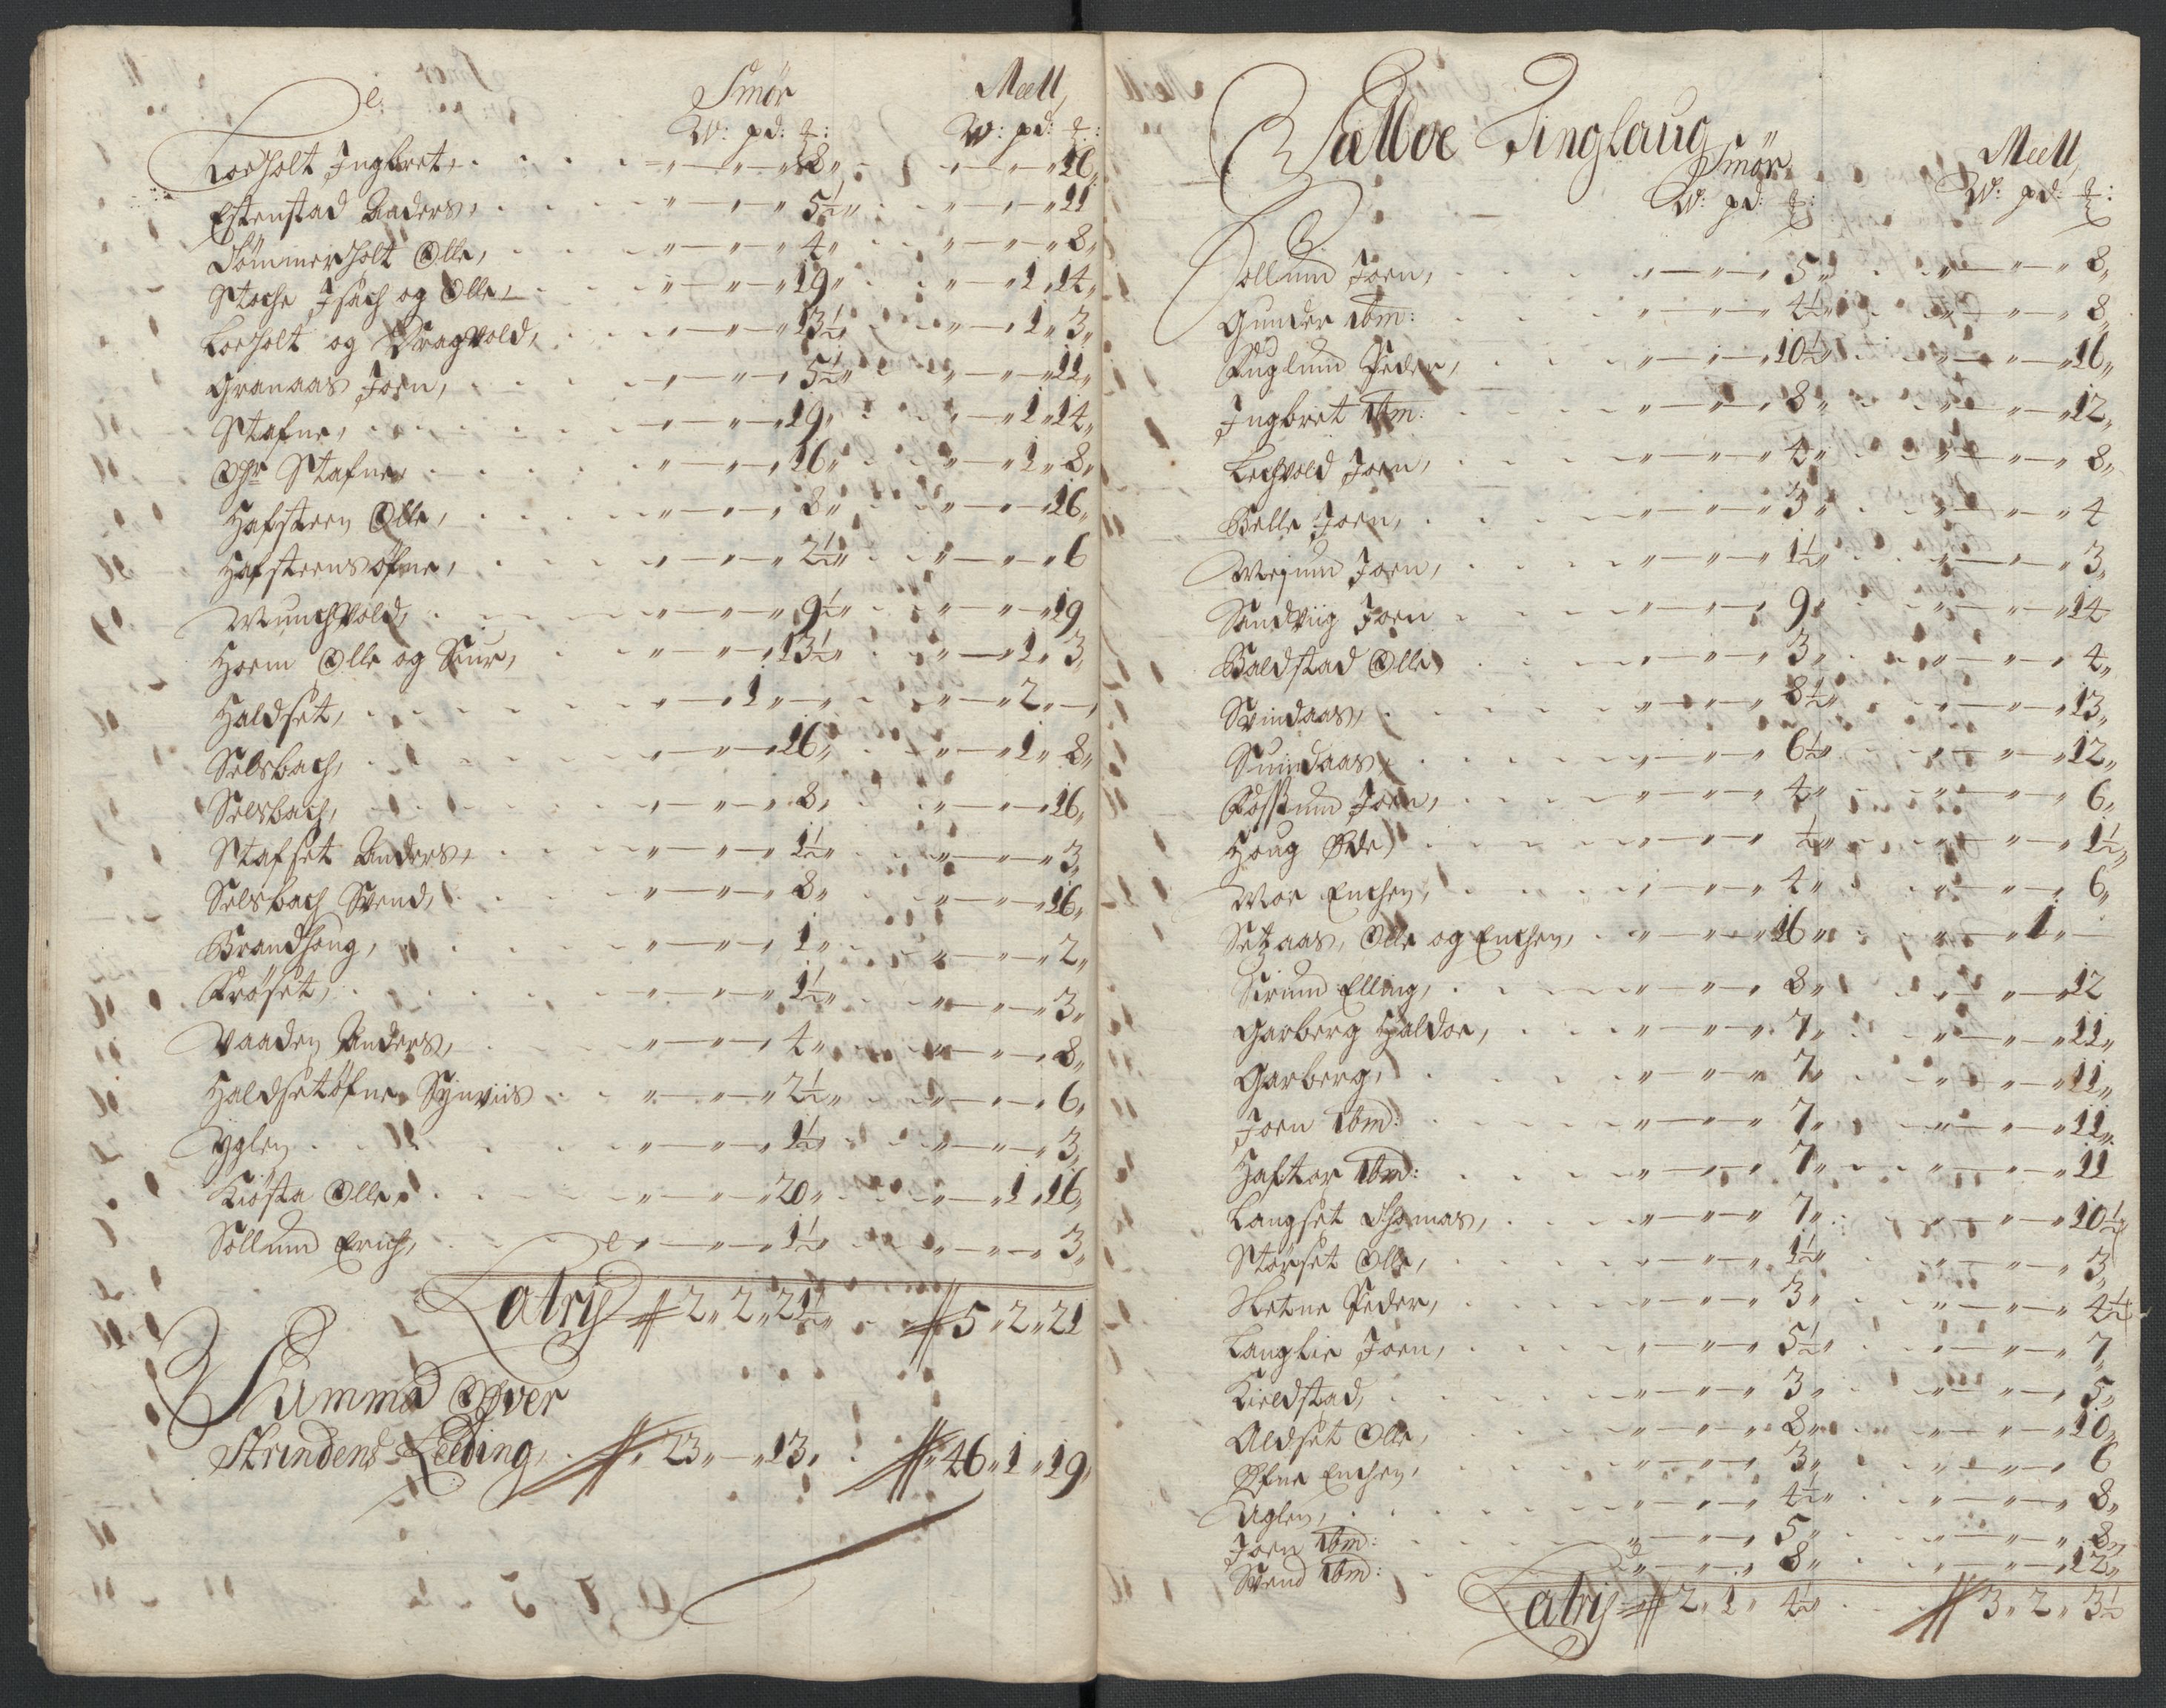 Smør Meell
W: pd: ℔: W: pd: ℔:
Loeholt Ingbret, " — " — " 8 " " — " — " 16,
Estenstad Anders, " — " — " 5½ " " — " — " 11
Sömmerholt Olle, " — " — " 4 " " — " — " 8,
Stoche Isach og Olle, " — " — " 19 " " — " 1 " 14,
Loeholt og Dragvold, " — " — " 13½ " " — " 1 " 3,
Granaas Joen, " — " — " 5½ " " — " — " 11,
Stafne, " — " — " 19, " — " 1 " 14,
Øfr Stafne, " — " — " 16 " " — " 1 " 8,
Hafsteen Olle, " — " — " 8 " " — " — " 16,
Hafsteensøfne, " — " — " 2½ " " — " — " 6
Munchvold, " — " — " 9½ " " — " — " 19
Hoem Olle og Siur, " — " — " 13½ " " — " 1 " 3,
Haldset, " — " 1 " — " " — " 2 " —,
Selsbach, " — " — " 16 " " — " 1 " 8,
Selsbach, " — " — " 8, " — " — " 16,
Stafset Anders, " — " — " 1½ " " — " — " 3,
Selsbach Svend, " — " — " 8 " " — " — " 16,
Brandhoug, " — " — " 1 " " — " — " 2,
Frøset, " — " — " 1½ " " — " — " 3,
Vaaden Anders, " — " — " 4 " " — " — " 8,
Haldsetøfne Synviis " — " — " 2½ " " — " — " 6,
Uglen " — " — " 1½ " " — " — " 3,
Kiösta Olle, " — " — " 20 " " — " 1 " 16,
Sollum Erich, " — " — " 1½ " " — " — " 3,
Latris 2 " 2 " 21½ " 5 " 2 " 21
Summa Øfver
Strindens Leeding, 23 " — " 13, 46 " 1 " 19,
Sælboe Tinglaug
Smør Meell,
W: pd: ℔: W: pd: ℔:
Sollum Joen, " — " — " 5 " " — " — " 8,
Gunder ibm: " — " — " 4½ " " — " — " 8,
Fuglum Peder, " — " — " 10½ " " — " — " 16,
Ingbret ibm: " — " — " 8 " " — " — " 12,
Lechvold Joen, " — " — " 4 " " — " — " 8,
Belle Joen, " — " — " 3 " " — " — " 4
Mejum Joen, " — " — " 1½ " " — " — " 3,
Sandviig Joen " — " — " 9 " " — " — " 14
Baldstad Olle, " — " — " 3, " — " — " 4,
Svindaas, " — " — " 8½ " " — " — " 13,
Suindaas, " — " — " 6½ " " — " — " 12,
Fossum Joen, " — " — " 4 " " — " — " 6,
Houg Øde " — " — " ½ " " — " — " 1½ "
Moe Enchen, " — " — " 4 " " — " — " 6,
Setzaas, Olle og Enchen, " — " — " 16 " " — " 1 " —
Sirum Elling, " — " — " 8 " " — " — " 12
Garberg Haldor, " — " — " 7, " — " — " 11,
Garberg, " — " — " 7 " — " — " 11,
Joen ibm: " — " — " 7, " — " — " 11,
Haftor ibm: " — " — " 7 " " — " — " 11
Langset Thomas, " — " — " 7 " " — " — " 10½
Størset Olle, " — " — " 1½ " " — " — " 3,
Netne Peder, " — " — " 3 " " — " — " 4½
Langlie Joen, " — " — " 5½ " " — " — " 7,
Kieldstad, " — " — " 3 " " — " — " 5,
Aldset Olle, " — " — " 8 " " — " — " 10,
Øfne Enchen, " — " — " 3 " " — " — " 6
Uglen, " — " — " 4½ " " — " — " 8,
Joen ibm: " — " — " 5 " " — " — " 8,
Svend ibm: " — " — " 8 " " — " — " 12,
Latris 2 " 1 " 4½ " 3 " 2 " 3½